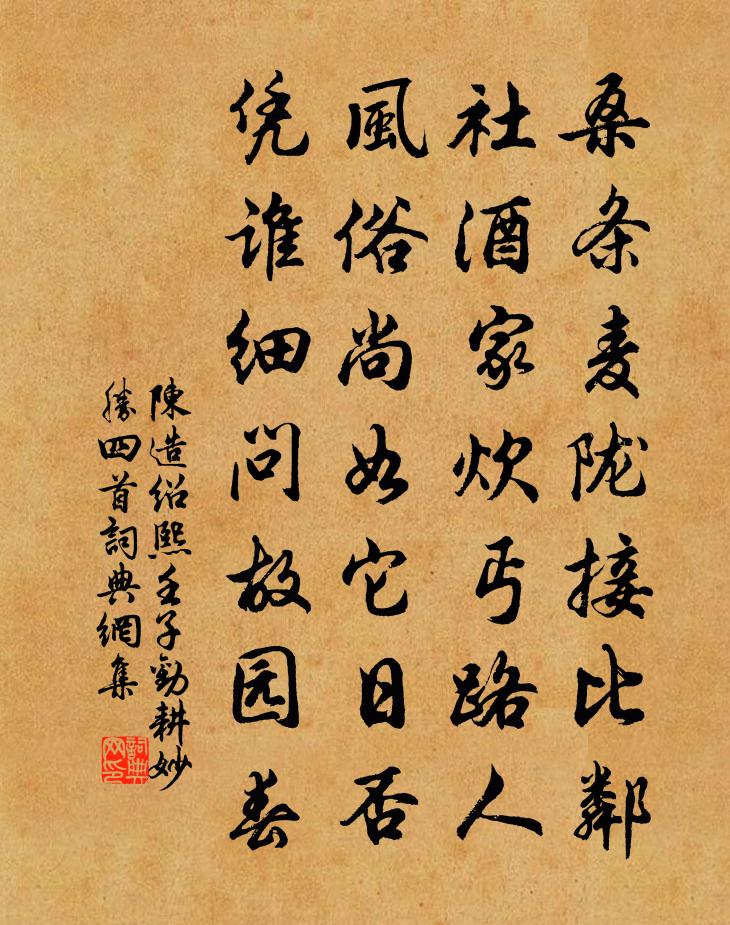 桑条麦陇接比鄰
社酒家炊丐路人
風俗尚如它日否
凭谁细问故园春
陳造绍熙壬子勸耕妙
勝四首詞典網集
詞典网印